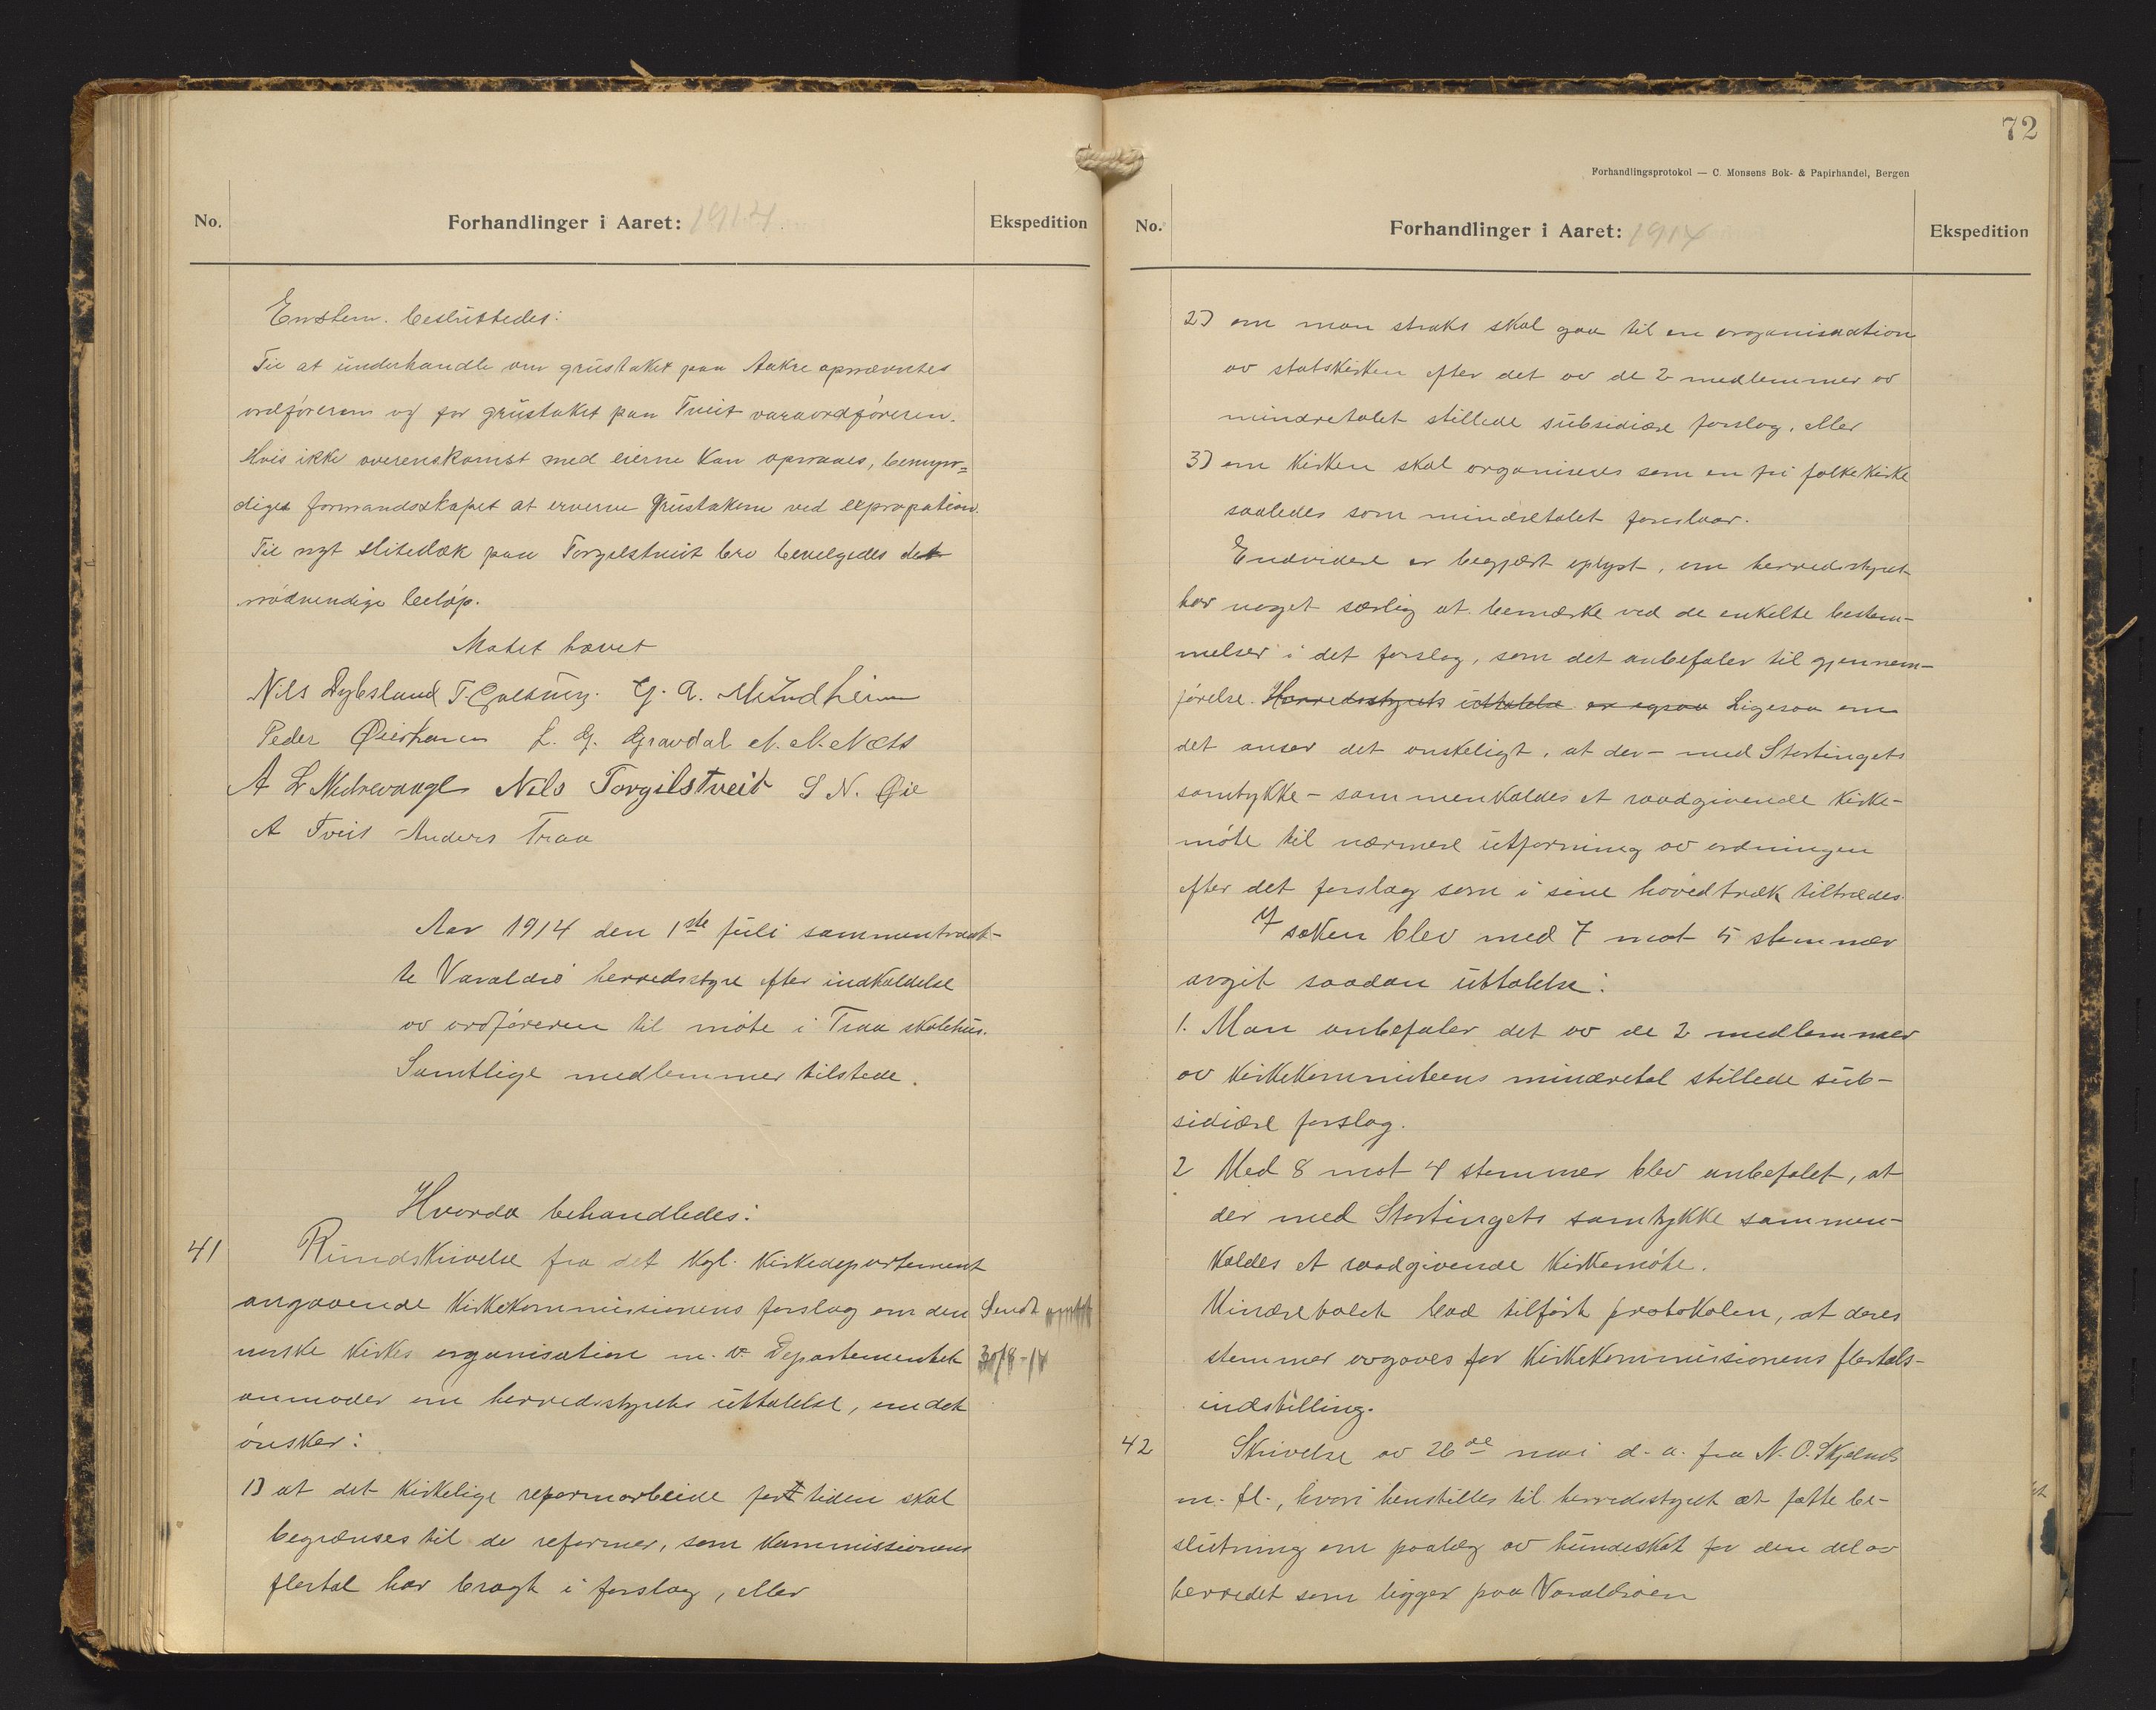 No.
Forhandlinger i Aaret: 1914.
Ekspedition
Enstem. besluttedes:
Til at underhandle om grustaket paa Aakre opnævntes
ordføreren og for grustaket paa Tveit varaordføreren.
Hvis ikke overenskomst med eierne kan opnaaes, bemyn-
diges formandsskapet at erverve grustakene ved expropation.
Til nyt slitedæk paa Torgilstveit bro bevilgedes det
nødvendige beløp.
Møtet hævet
Nils Dybsland T. G. A. Mundheim
Peder L. G. Gravdal N. N. Næss
A L Nedrevaage Nils Torgilstveit S N. Øie
A Tveit Anders Traa
Aar 1914 den 1ste juli sammentraat-
te Varaldsø herredsstyre efter indkaldelse
av ordføreren til møte i Traa skolehus.
Samtlige medlemmer tilstede.
Hvorda behandledes:
41 Rundskrivelse fra det kgl. Kirkedepartement
angaaende Kirkekommissionens forslag om den Sendt amtet
norske kirkes organisation m. v. Departementet 30/8-14
anmoder om herredsstyrets uttalelse, om det
ønsker:
1) at det kirkelige reformarbeide fort tiden skal
begrænses til de reformer, som kommissionens
flertal har bragt i forslag, eller
72
Forhandlingsprotokol — C. Monsens Bok- & Papirhandel, Bergen
No.
Forhandlinger i Aaret: 1914
Ekspedition
2) om man straks skal gaa til en organisaation
av statskirken efter det av de 2 medlemmer av
mindretalet stillede subsidiære forslag, eller
3) om kirken skal organiseres som en fri folkekirke
saaledes som mindretalet foreslaar.
Endvidere er begjært oplyst, om herredsstyret
har noget særlig at bemærke ved de enkelte bestem-
melser i det forslag, som det anbefaler til gjennem-
førelse. Herredsstyrets uttalelse er ogsaa Ligesaa om
det anser det ønskeligt, at der - med Stortingets
samtykke - sammenkaldes et raadgivende kirke-
møte til nærmere utforming av ordningen
efter det forslag som i sine hovedtræk tiltrædes.
I saken blev med 7 mot 5 stemmer
avgit saadan uttalelse:
1. Man anbefaler det av de 2 medlemmer
av kirkekommiteens mindretal stillede sub-
sidiære forslag.
2 Med 8 mot 4 stemmer blev anbefalet, at
der med Stortingets samtykke sammen-
kaldes et raadgivende kirkemøte.
Mindretalet bad tilført protokolen, at deres
stemmer avgaves for Kirkekommissionens flertals-
indstilling.
42 Skrivelse av 26de mai d. a. fra N. O. Skjelnes
m. fl., hvori henstilles til herredsstyret at fatte be-
slutning om paalæg av hundeskat for den del av
herredet som ligger paa Varaldsøen